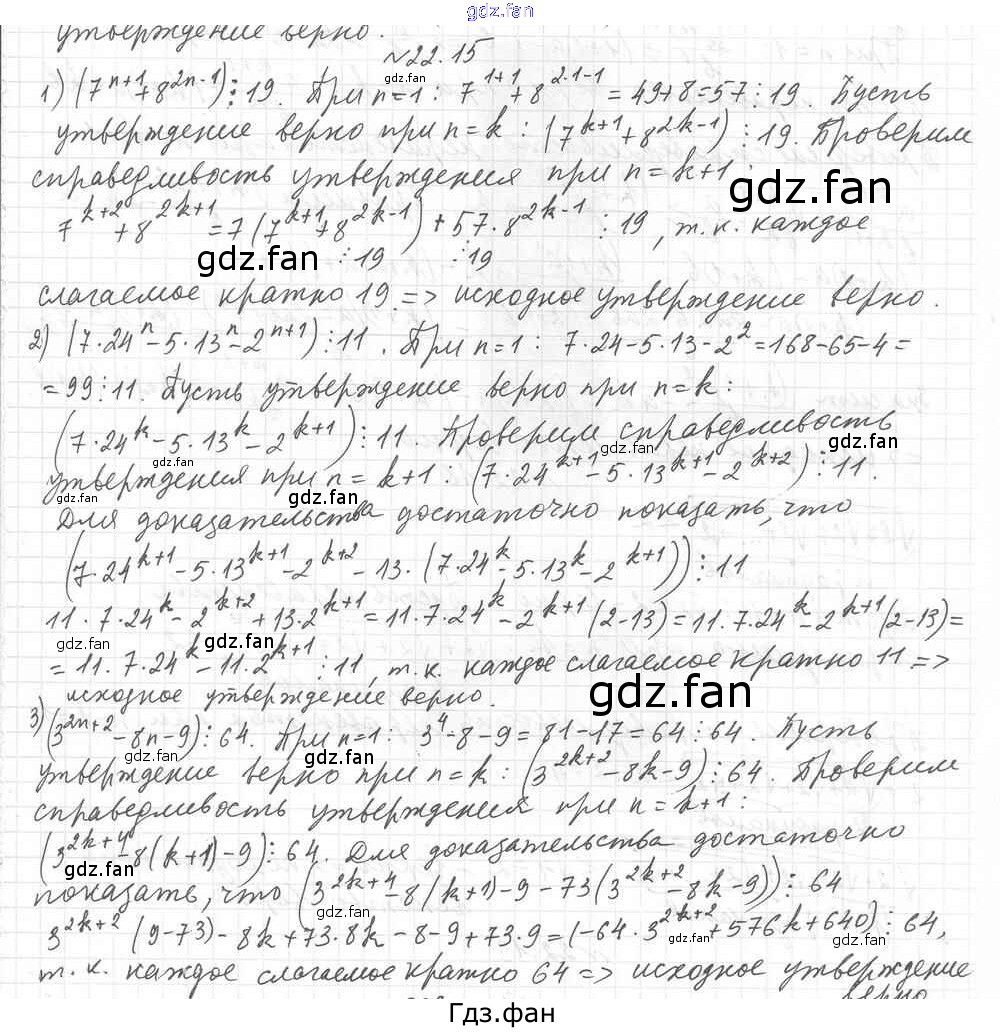 gdz.fan
утверждение верно.
№22.15
gdz.fan
1) (7^{n+1}+8^{2n-1})⋮19. При n=1: 7^{1+1}+8^{2·1-1}=49+8=57⋮19. Пусть
утверждение верно при n=k: (7^{k+1}+8^{2k-1})⋮19. Проверим
справедливость утверждения при n=k+1:
gdz.fan
7^{k+2}+8^{2k+1}=7(7^{k+1}+8^{2k-1})+57·8^{2k-1}⋮19, т.к. каждое
gdz.fan ⋮19 ⋮19
слагаемое кратно 19 => исходное утверждение верно.
2) (7·24^n-5·13^n-2^{n+1})⋮11. При n=1: 7·24-5·13-2^2=168-65-4=
=99⋮11. Пусть утверждение верно при n=k:
(7·24^k-5·13^k-2^{k+1})⋮11. Проверим справедливость
gdz.fan
утверждения при n=k+1: (7·24^{k+1}-5·13^{k+1}-2^{k+2})⋮11.
gdz.fan gdz.fan gdz.fan
Для доказательства достаточно показать, что
(7·24^{k+1}-5·13^{k+1}-2^{k+2}-13·(7·24^k-5·13^k-2^{k+1}))⋮11
gdz.fan
11·7·24^k-2^{k+2}+13·2^{k+1}=11·7·24^k-2^{k+1}(2-13)=11·7·24^k-2^{k+1}(2-13)=
gdz.fan gdz.fan gdz.fan
=11·7·24^k-11·2^{k+1}⋮11, т.к. каждое слагаемое кратно 11 =>
исходное утверждение верно.
gdz.fan
3) (3^{2n+2}-8n-9)⋮64. При n=1: 3^4-8-9=81-17=64⋮64. Пусть
gdz.fan gdz.fan
утверждение верно при n=k: (3^{2k+2}-8k-9)⋮64. Проверим
справедливость утверждения при n=k+1:
(3^{2k+4}-8(k+1)-9)⋮64. Для доказательства достаточно
gdz.fan gdz.fan
показать, что (3^{2k+4}-8(k+1)-9-73(3^{2k+2}-8k-9))⋮64
gdz.fan
3^{2k+2}(9-73)-8k+73·8k-8-9+73·9=(-64·3^{2k+2}+576k+640)⋮64,
gdz.fan
т.к. каждое слагаемое кратно 64 => исходное утверждение
верно
Гдз.фан